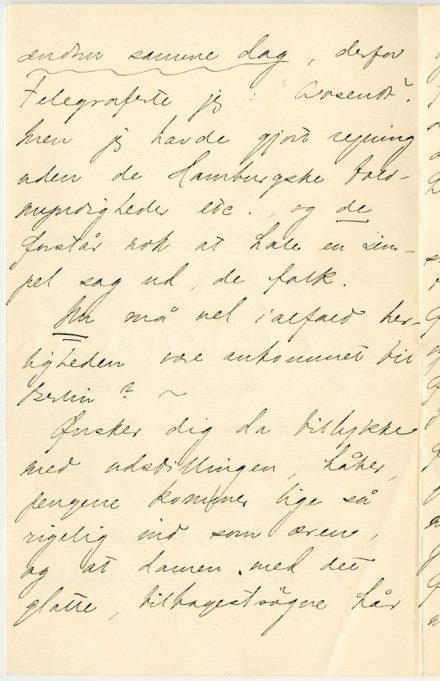 ændru samme dag, derfor
Telegraferte jeg: "Avsendt"?
Men jeg havde gjort regning
uden de Hamburgske told-
myndigheder etc., og de
forstår nok at hale en sim-
pel sag ud, de folk.
Nu må vel i alfald her-
ligheden være ankommet til
Berlin? ~
Ønsker dig da tillykke
med udstillingen, håber,
pengene kommer lige så
rigelig ind som æren,
og at damen med det
glatte, tilbagestrøgne hår